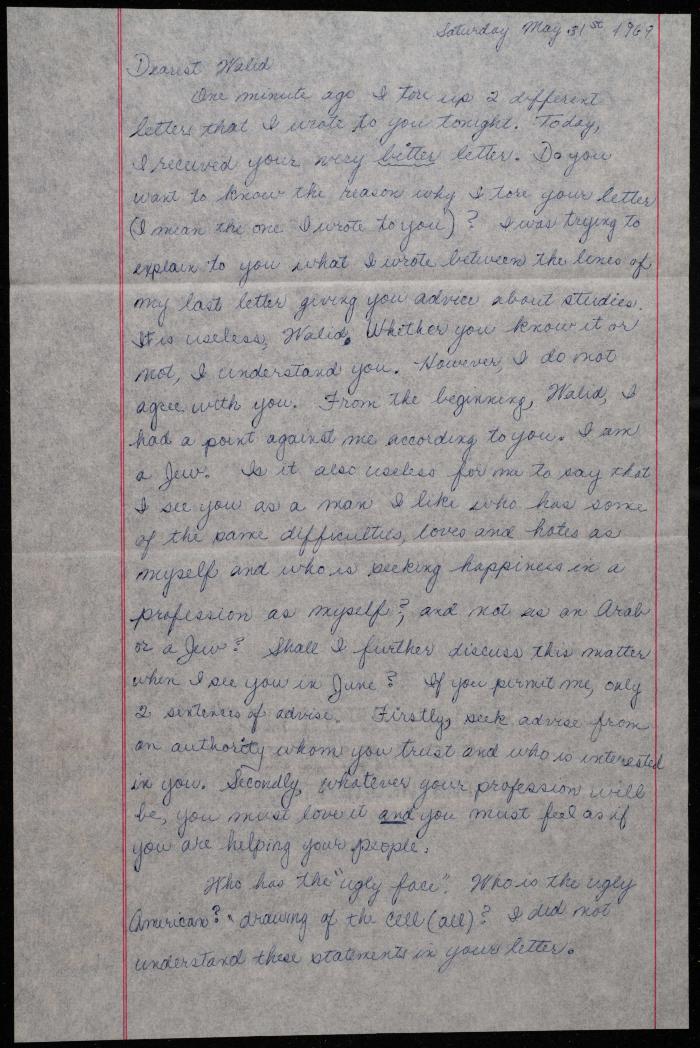 Saturday May 31st 1969
Dearest Walid
One minute ago I tore up 2 different
letters that I wrote to you tonight. Today,
I received your very bitter letter. Do you
want to know the reason why I tore your letter
(I mean the one I wrote to you)? I was trying to
explain to you what I wrote between the lines of
my last letter giving you advice about studies.
It is useless, Walid. Whether you know it or
not, I understand you. However, I do not
agree with you. From the beginning, Walid, I
had a point against me according to you. I am
a Jew. Is it also useless for me to say that
I see you as a man I like who has some
of the same difficulties, loves and hates as
myself and who is seeking happiness in a
profession as myself?, and not as an Arab
or a Jew? Shall I further discuss this matter
when I see you in June? If you permit me, only
2 sentences of advise. Firstly, seek advise from
an authority whom you trust and who is interested
in you. Secondly, whatever your profession will
be, you must love it and you must feel as if
you are helping your people.
Who has the "ugly face". Who is the ugly
American? drawing of the cell (all)? I did not
understand these statements in your letter.